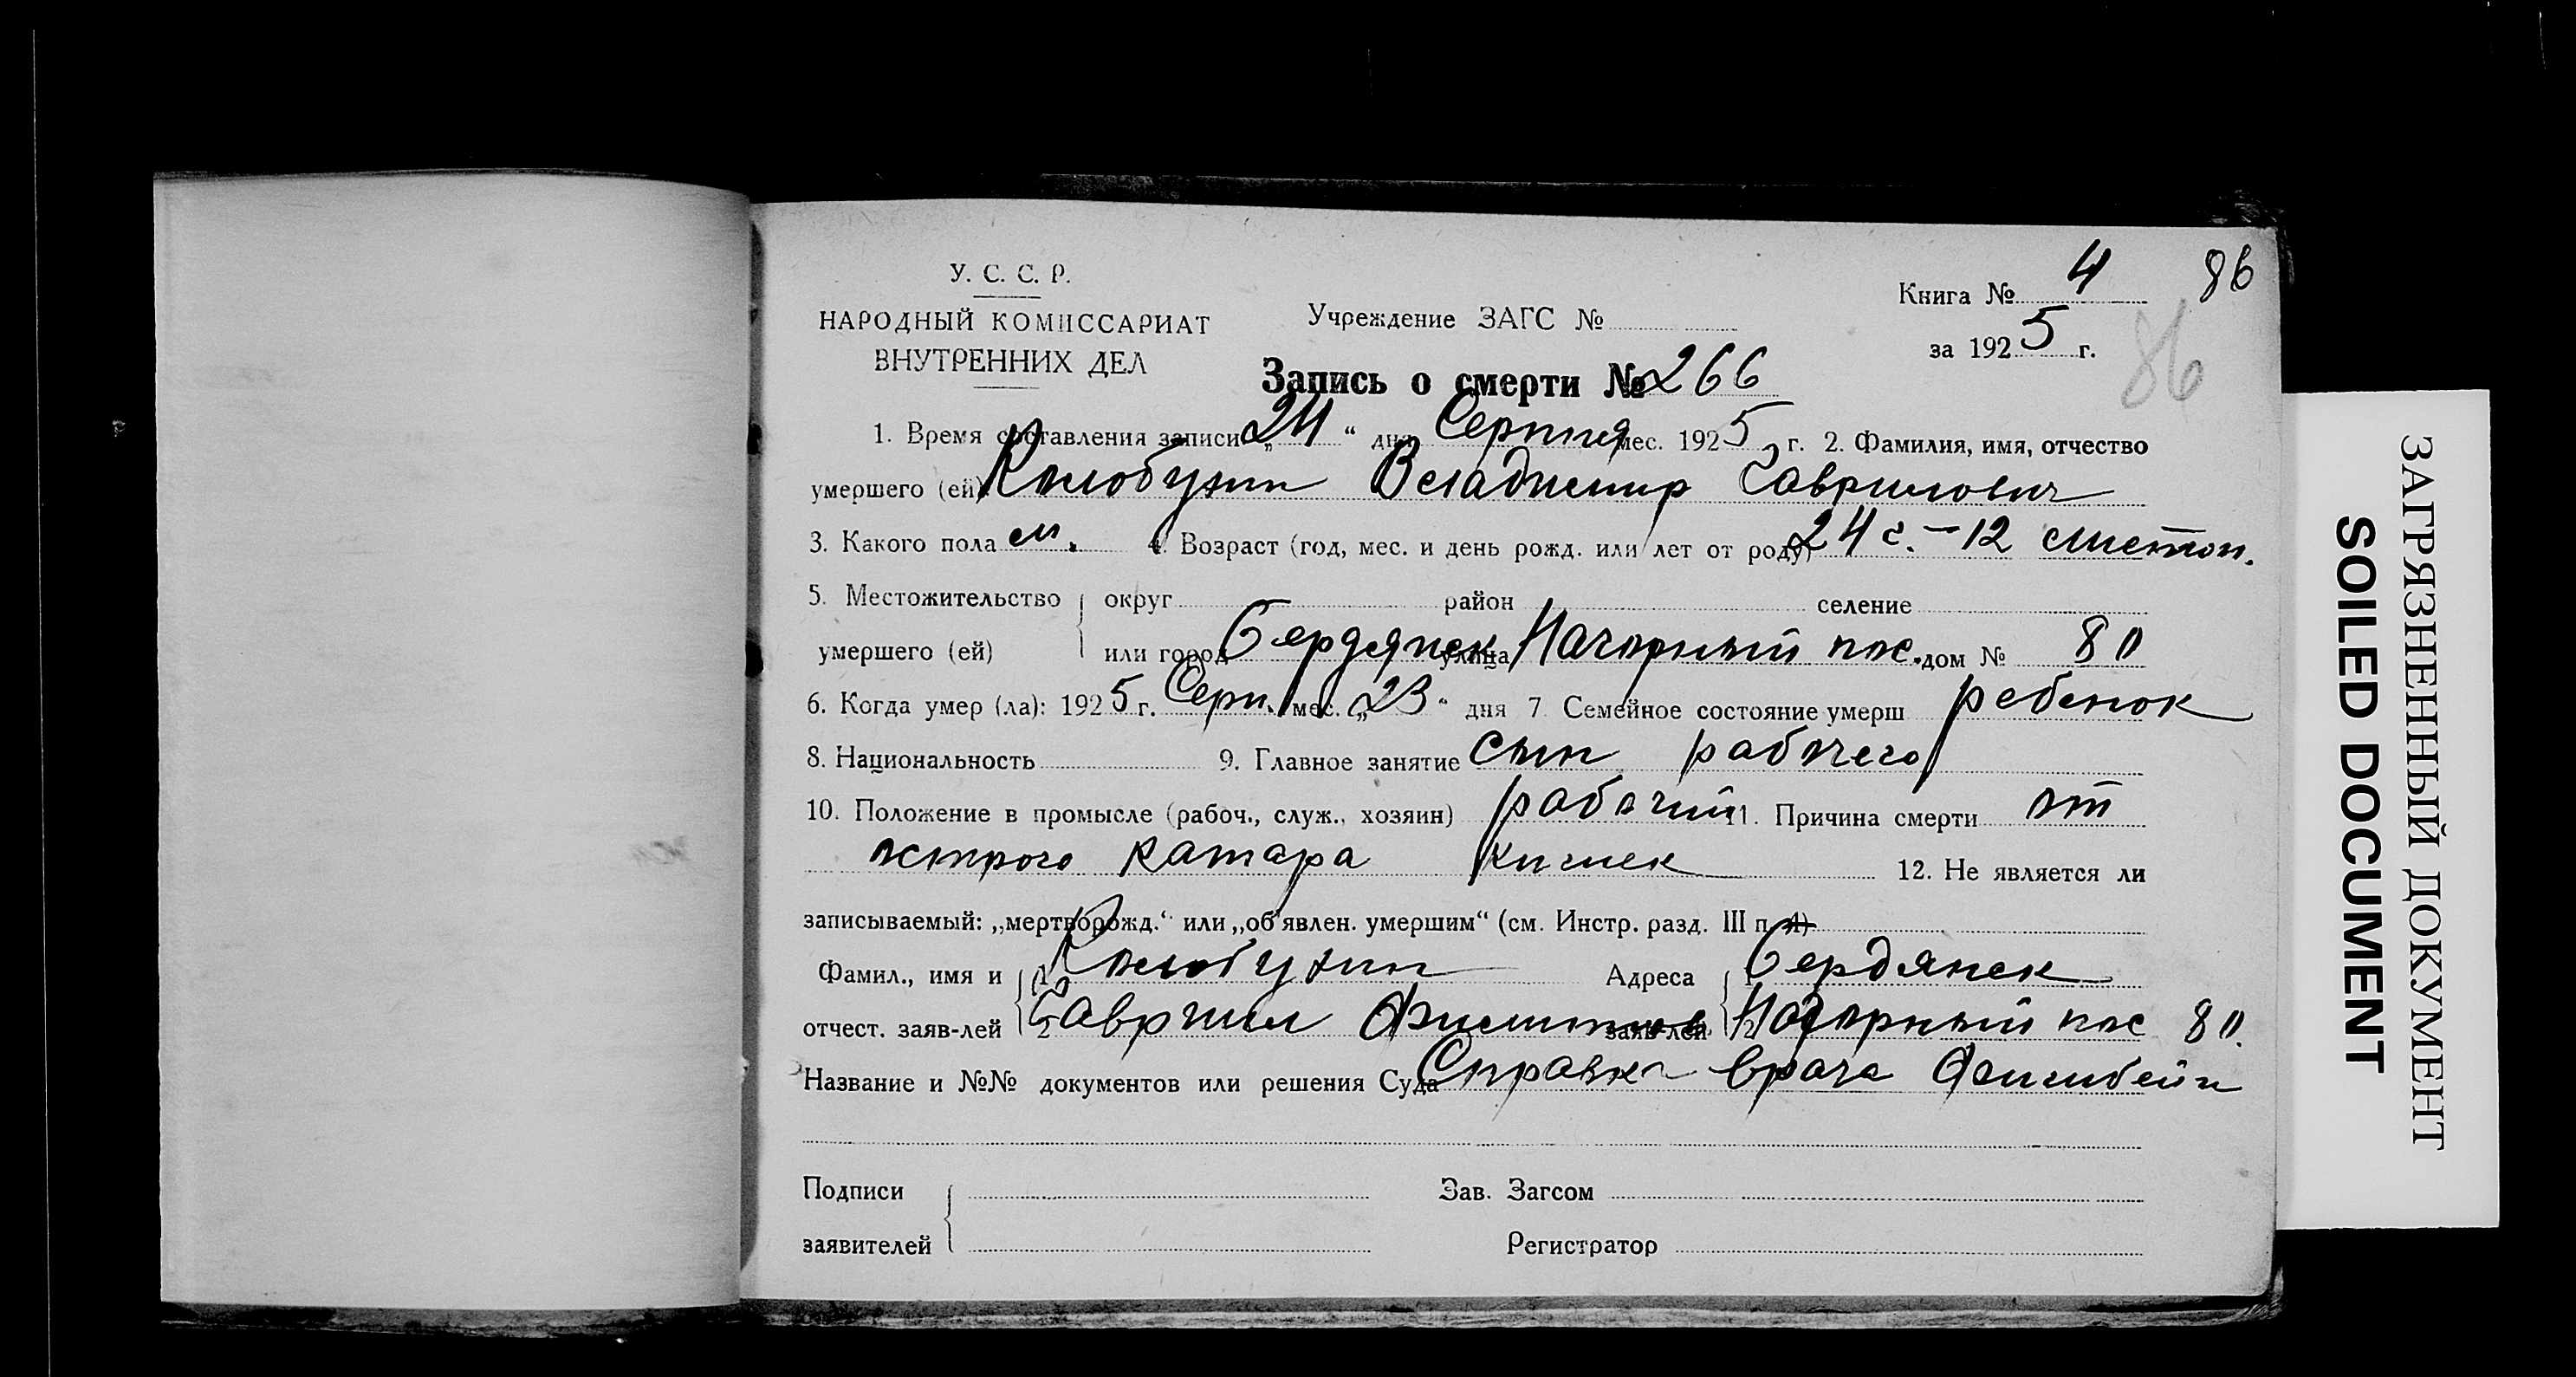 У. С. С. Р.
НАРОДНЫЙ КОМИССАРИАТ
ВНУТРЕННИХ ДЕЛ
Учреждение ЗАГС №
Книга № 4 86
за 1925 г. 86
Запись о смерти № 266
1. Время составления записи „24“ дня Серпня мес. 1925 г. 2. Фамилия, имя, отчество
умершего (ей) Колобухин Владимир Гаврилович
3. Какого пола м. 4. Возраст (год, мес. и день рожд. или лет от роду) 24 г. – 12 листоп.
5. Местожительство округ район селение
умершего (ей) или город Бердянск улица Нагорный пос. дом № 80
6. Когда умер (ла): 1925 г. Серп. мес. „23“ дня 7 Семейное состояние умерш ребенок
8. Национальность 9. Главное занятие сын рабочего
10. Положение в промысле (рабоч., служ., хозяин) рабочий 11. Причина смерти от
острого катара кишек 12. Не является ли
записываемый: „мертворожд.“ или „об'явлен. умершим“ (см. Инстр. разд. III п. 4)
Фамил., имя и 1 Колобухин Адреса 1 Бердянск
отчест. заяв-лей 2 Гавриил заяв-лей 2 Нагорный пос 80.
Название и №№ документов или решения Суда Справка врача
Подписи
заявителей
Зав. Загсом
Регистратор
ЗАГРЯЗНЕННЫЙ ДОКУМЕНТ
SOILED DOCUMENT